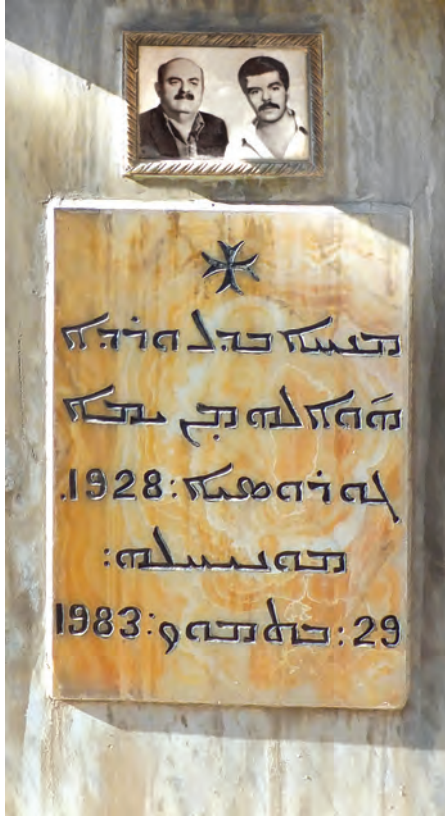 ܡܢܝܚܐ ܒܕܠ ܘܪܕܐ
ܗܘܐܠܗ ܡܢ ܝܡܐ
ܓܘ ܪܘܣܝܐ: 1928.
ܡܘܢܝܚܠܗ:
29: ܒܬܡܘܙ: 1983